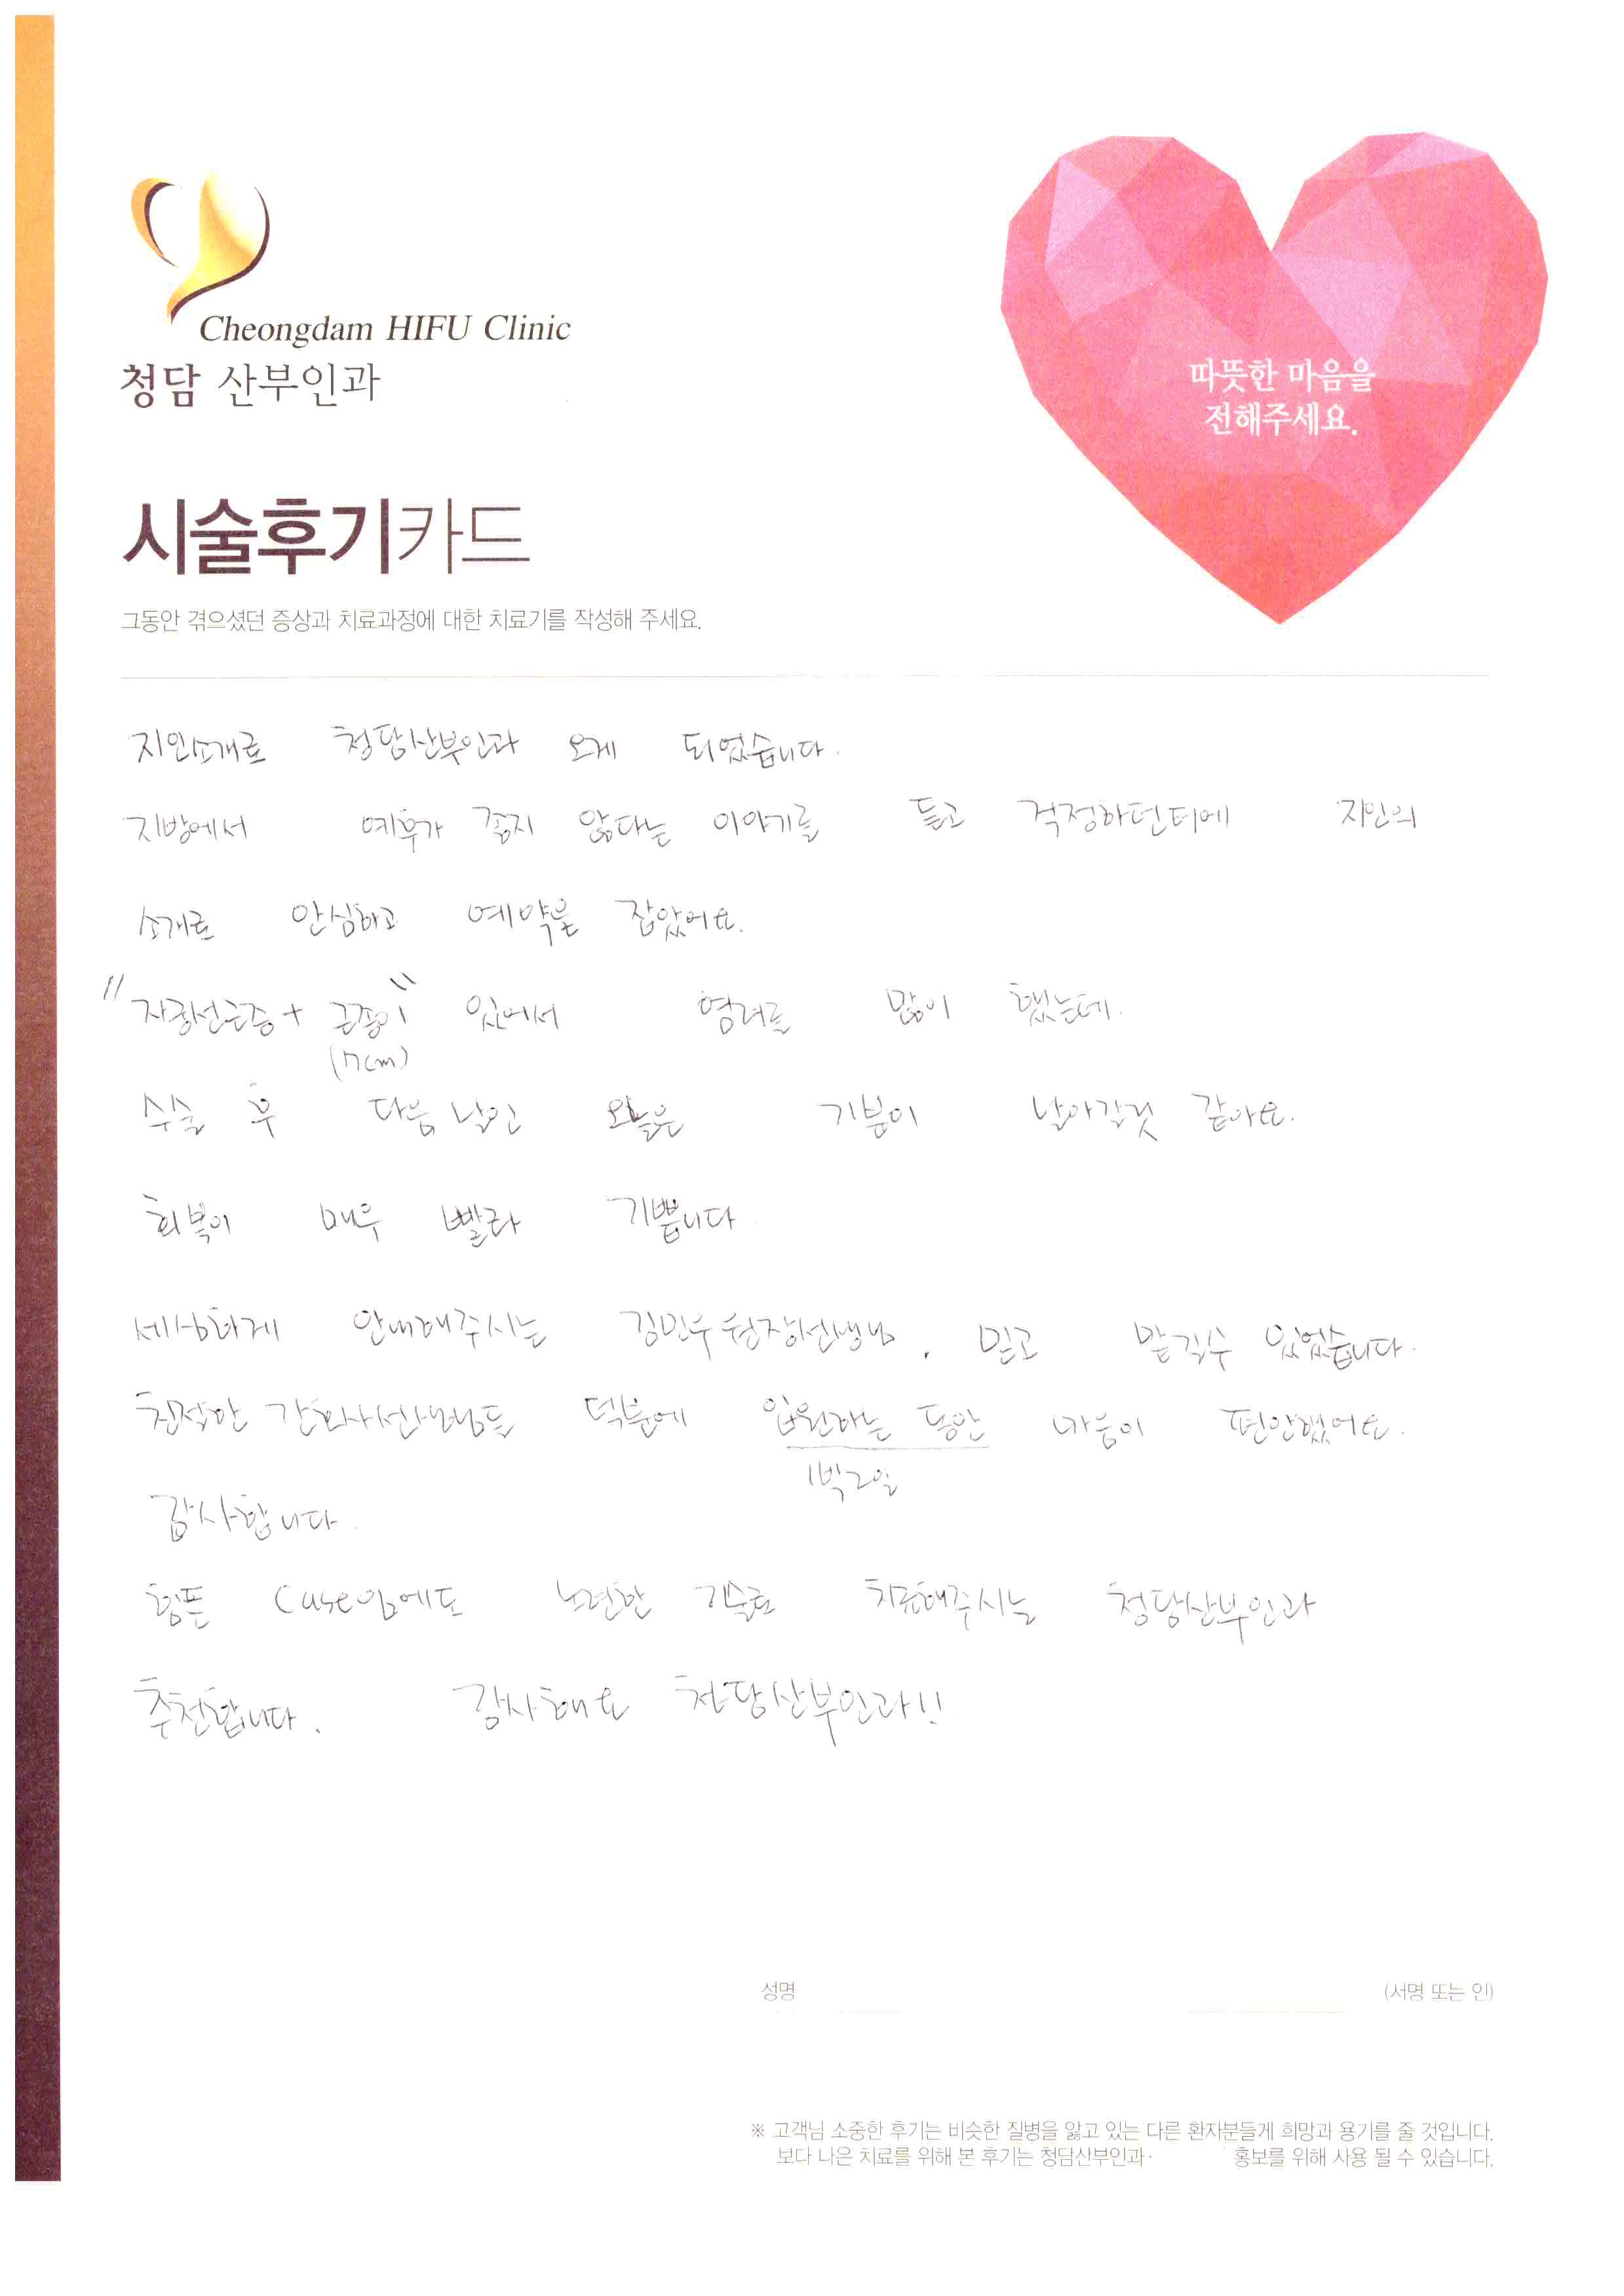 Cheongdam HIFU Clinic
청담 산부인과
따뜻한 마음을
전해주세요.
시술후기카드
그동안 겪으셨던 증상과 치료과정에 대한 치료기를 작성해 주세요.
지인소개로 청담산부인과 오게 되었습니다.
지방에서 예후가 좋지 않다는 이야기를 듣고 걱정하던터에 지인의
소개로 안심하고 예약을 잡았어요.
"자궁선근증+근종이" 있어서 염려를 많이 했는데.
(7cm)
수술 후 다음날인 오늘은 기분이 날아갈것 같아요.
회복이 매우 빨라 기쁩니다
세심하게 안내해주시는 김민우원장선생님, 믿고 맡길수 있었습니다.
친절한 간호사선생님들 덕분에 입원하는 동안 마음이 편안했어요.
1박2일
감사합니다.
힘든 Case임에도 노련한 기술로 치료해주시는 청담산부인과
추천합니다. 감사해요 청담산부인과!!
성명 (서명 또는 인)
※ 고객님 소중한 후기는 비슷한 질병을 앓고 있는 다른 환자분들게 희망과 용기를 줄 것입니다.
보다 나은 치료를 위해 본 후기는 청담산부인과· 홍보를 위해 사용 될 수 있습니다.